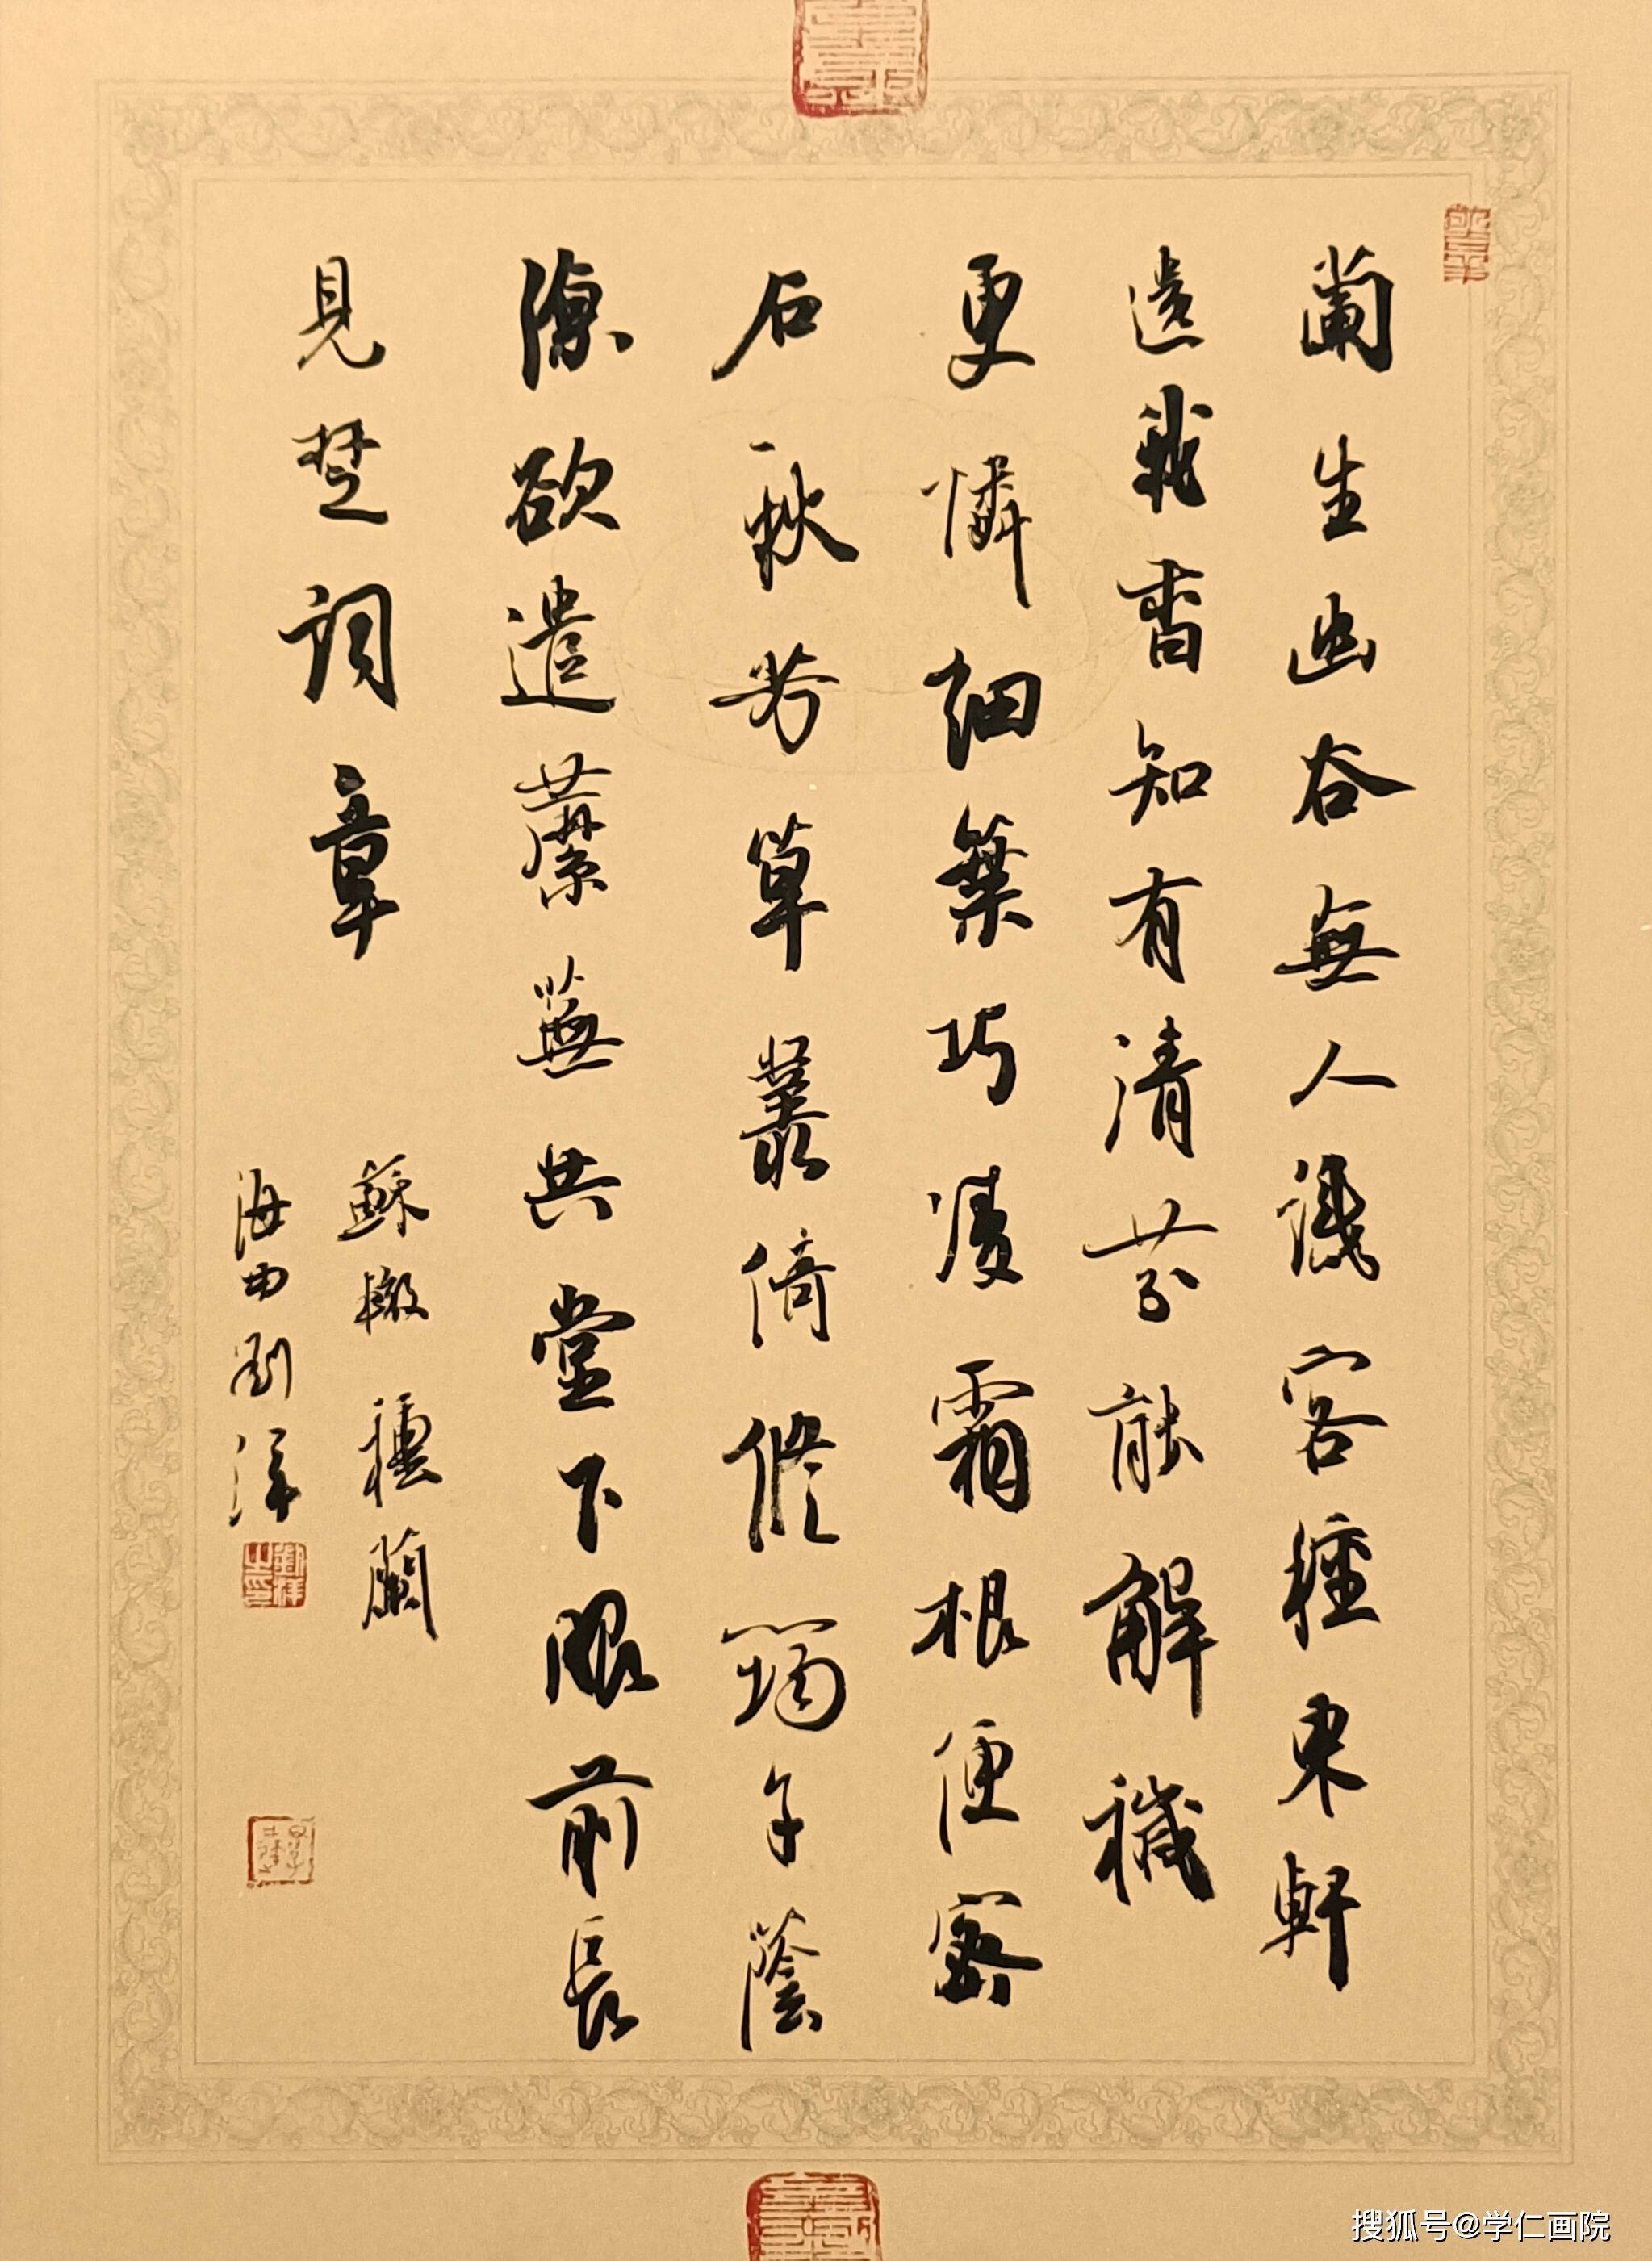 蘭生幽谷無人識客種東軒
遺我香知有清芬能解穢
更憐細葉巧凌霜根便密
石秋芳草叢倚修筠午蔭
涼欲遣蘼蕪共堂下眼前長
見楚詞章
蘇轍種蘭
海曲劉洋
搜狐号@学仁画院